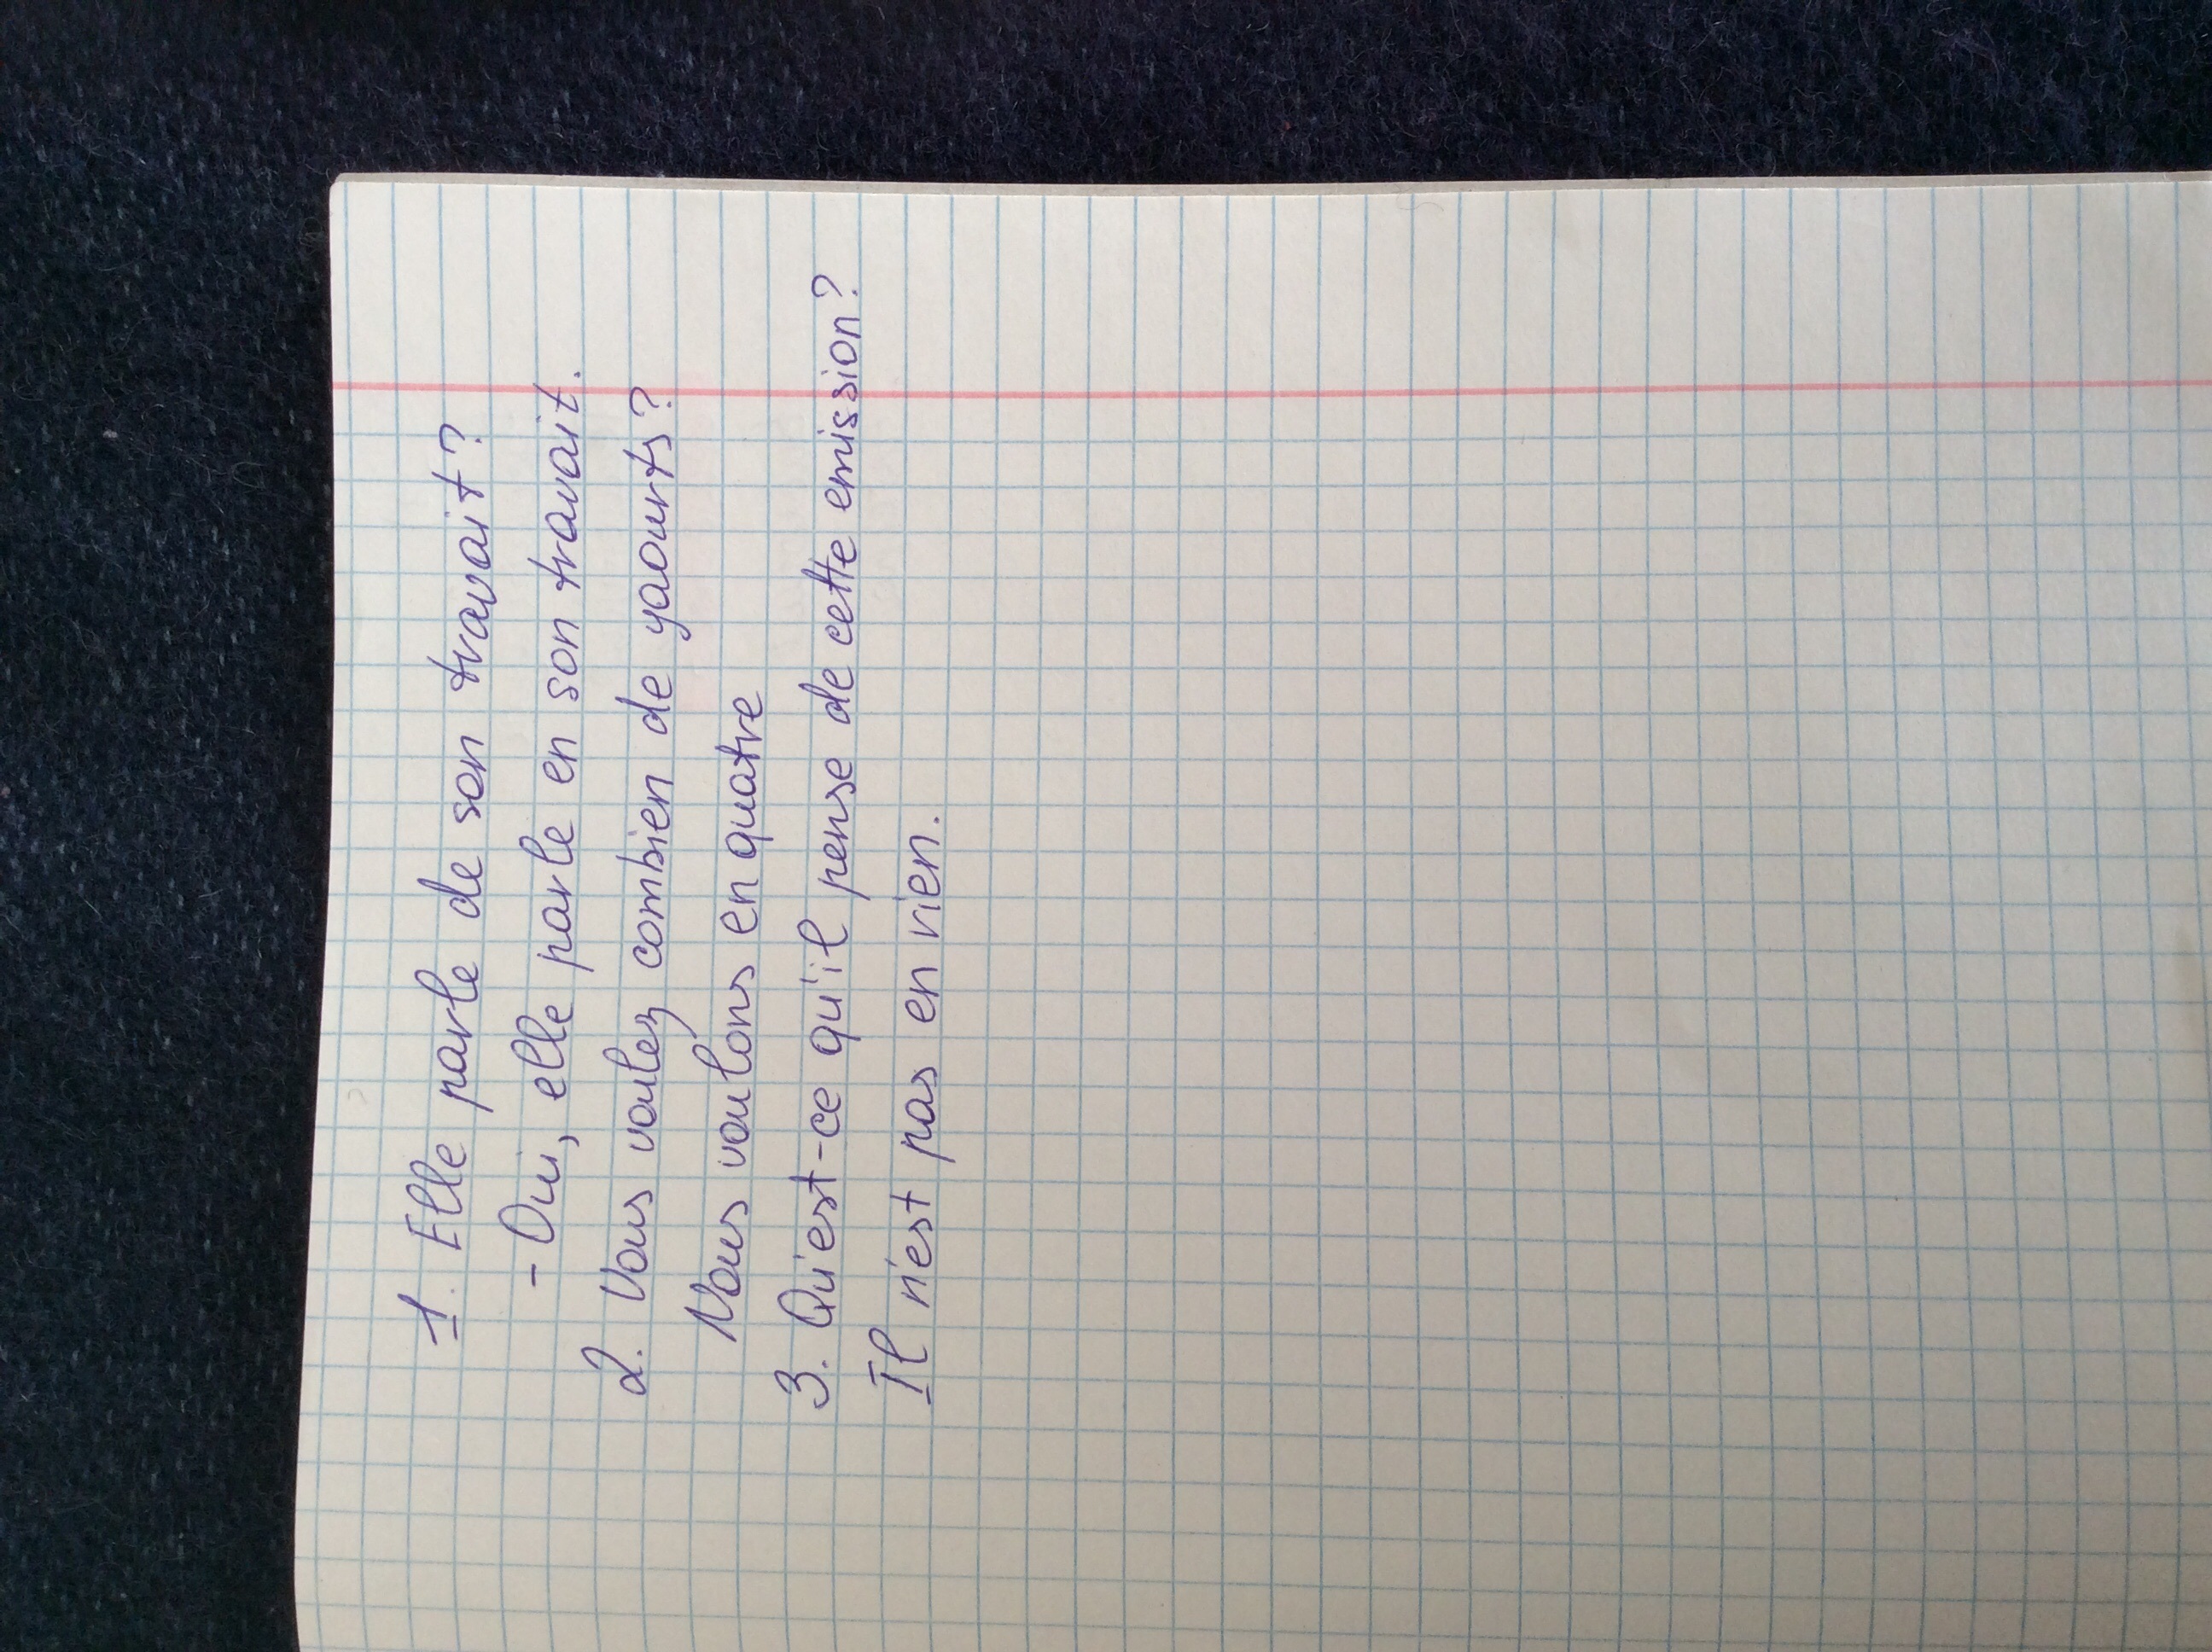 1. Elle parle de son travait?
- Oui, elle parle en son travait.
2. Vous voulez combien de yaourts?
Nous voulons en quatre
3. Qu'est-ce qu'il pense de cette emission?
Il n'est pas en rien.